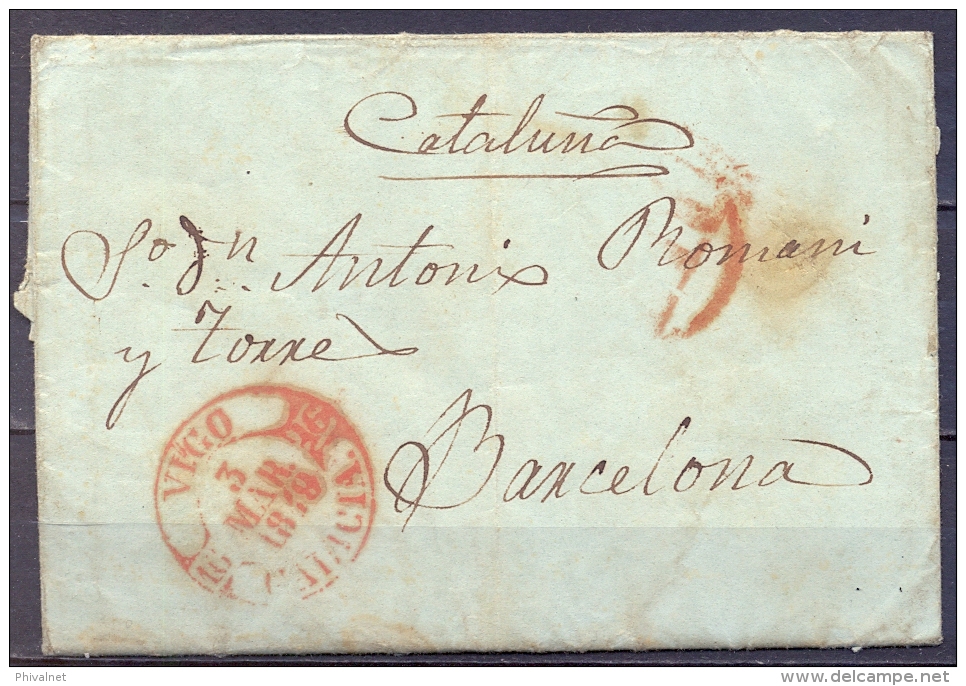 Cataluña
Sor. Dn. Antonio Romani
y Torres
Barcelona
VIGO
3
MAR
GALICIA
Phivalnet
www.delcampe.net